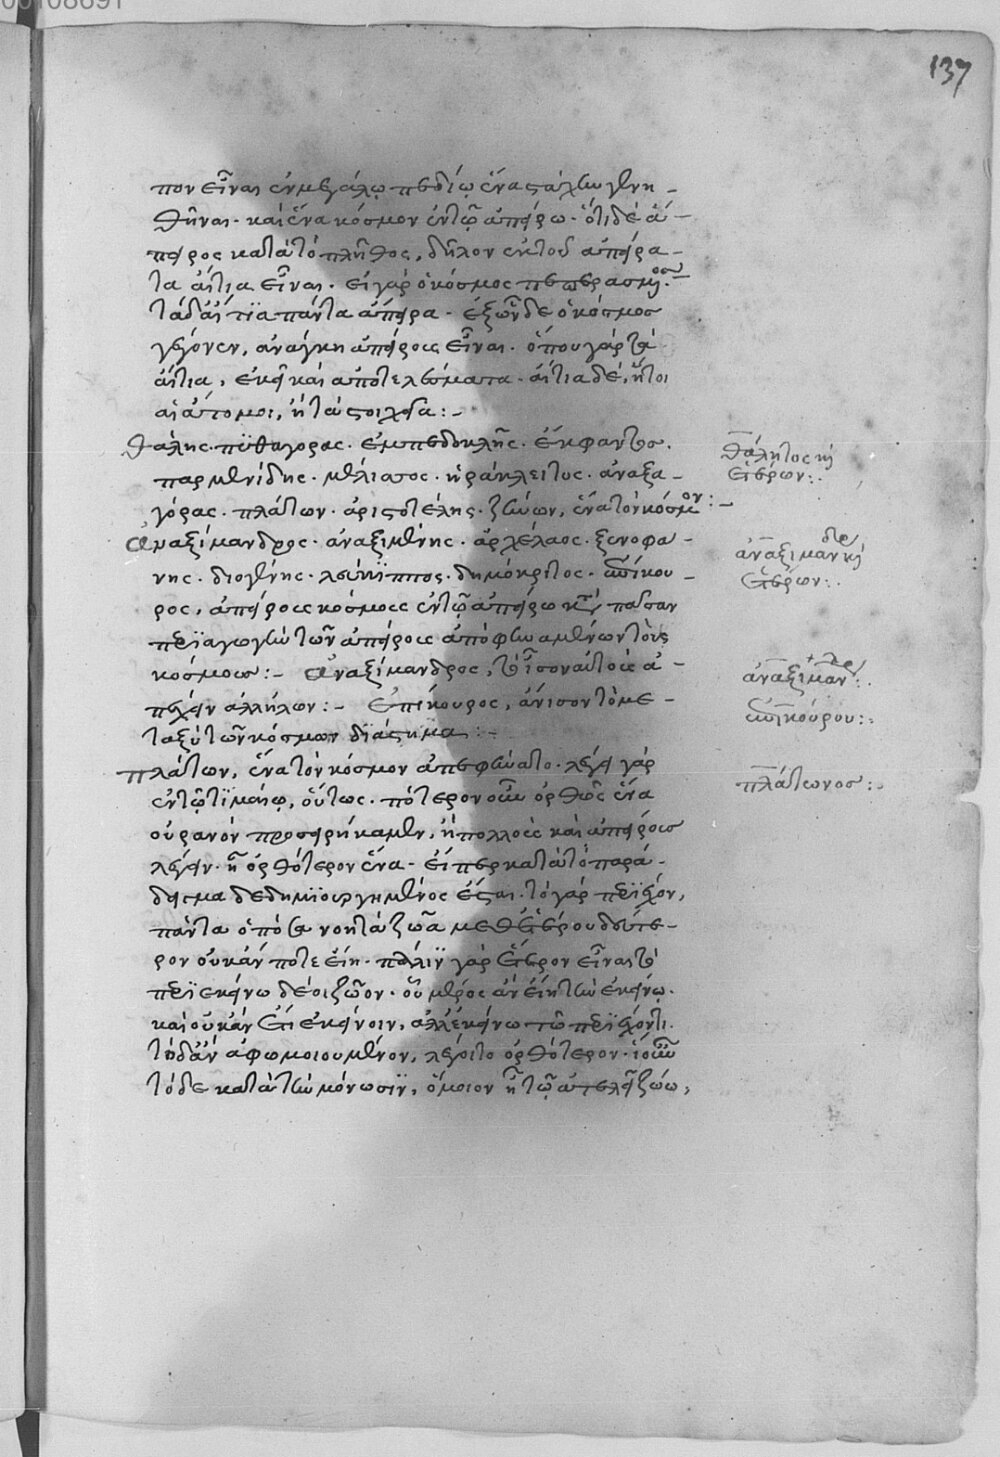 137
πον εἶναι ἐν μεγάλῳ πεδίῳ ἕνα στάχυν γενη-
θῆναι· καὶ ἕνα κόσμον ἐν τῷ ἀπείρω· ὅτι δὲ ἄ-
πειρος κατὰ τὸ πλῆθος, δῆλον ἐκ τοῦ ἄπειρα-
τα αἴτια εἶναι· εἰ γὰρ ὁ κόσμος πεπερασμένος
τὰ δ' αἴτϊα πάντα ἄπειρα· ἐξ ὧν δε ὁ κόσμος
γέγονεν, ἀνάγκη ἀπείρους εἶναι· ὅπου γὰρ τὰ
αἴτια, ἐκεῖ καὶ ἀποτελέσματα· αἴτια δέ, ἤτοι
αἱ ἄτομοι, ἢ τὰ στοιχεῖα:-
Θαλῆς· πϋθαγόρας· ἐμπεδοκλῆς· ἔκφαντος· Θάλητος καὶ
παρμενίδης· μέλισσος· ἡράκλειτος· ἀναξα- ἑτέρων:.
γόρας· πλάτων· ἀριστοτέλης· ζήνων, ἕνα τὸν κόσμον:-
Ἀναξίμανδρος· ἀναξιμένης· ἀρχέλαος· ξενοφά- ἀναξιμάνδρου καὶ
νης· διογένης· λεύκϊππος· δημόκριτος· ἐπίκου- ἑτέρων:.
ρος, ἀπείρους κόσμους ἐν τῷ ἀπείρω κατὰ πᾶσαν
περϊαγωγὴν τῶν ἀπείρους
κόσμους:- Ἀναξίμανδρος, τὸ ἴσον αὐτοὺς ἀ- ἀναξιμάνδρου:.
πέχειν ἀλλήλων:- Ἐπίκουρος, ἄνισον τὸ με- ἐπικούρου:.
ταξὺ τῶν κόσμων δϊάστημα:-
Πλάτων, ἕνα τὸν κόσμον ἀπεφήνατο· λέγει γὰρ πλάτωνος:.
ἐν τῷ τϊμαίῳ, οὕτως· πότερον οὖν ὀρθῶς ἕνα
οὐρανὸν προσειρήκαμεν, ἢ πολλοὺς καὶ ἀπείρους
λέγειν· ἦ ὀρθότερον ἕνα· εἴπερ κατὰ τὸ παρά-
δειγμα δεδημϊουργημένος ἔσται· τὸ γὰρ περϊέχον,
πάντα ὁπόσα νοητὰ ζῶα μεθ' ἑτέρου δεύτε-
ρον οὐκ ἄν ποτε εἴη· πάλϊν γὰρ ἕτερον εἶναι τὸ
περϊ ἐκείνω δέοι ζῶον· οὗ μέρος ἂν εἴη τὼ ἐκείνω·
καὶ οὐκ ἂν ἔτι ἐκείνοιν, ἀλλ' ἐκείνω τῶ περϊέχοντι
τόδ' ἂν ἀφωμοιουμένον, λέγοιτο ὀρθότερον· ἵν' οὖν
τόδε κατὰ τὴν μόνωσϊν, ὅμοιον ᾖ τῷ ἀτελεῖ ζώω,